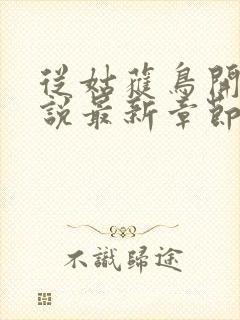 從姑蒦鳥開
說最新章節
不識歸途